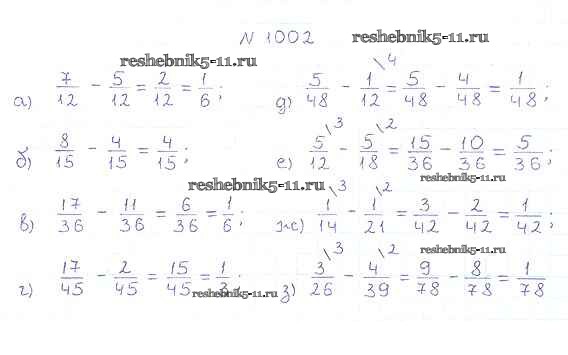 N 1002
reshebnik5-11.ru
reshebnik5-11.ru
а) 7/12 - 5/12 = 2/12 = 1/6;
д) 5/48 - 1/12 \4 = 5/48 - 4/48 = 1/48;
б) 8/15 - 4/15 = 4/15;
е) 5/12 \3 - 5/18 \2 = 15/36 - 10/36 = 5/36;
reshebnik5-11.ru
reshebnik5-11.ru
в) 17/36 - 11/36 = 6/36 = 1/6;
ж) 1/14 \3 - 1/21 \2 = 3/42 - 2/42 = 1/42;
reshebnik5-11.ru
г) 17/45 - 2/45 = 15/45 = 1/3;
з) 3/26 \3 - 4/39 \2 = 9/78 - 8/78 = 1/78
reshebnik5-11.ru